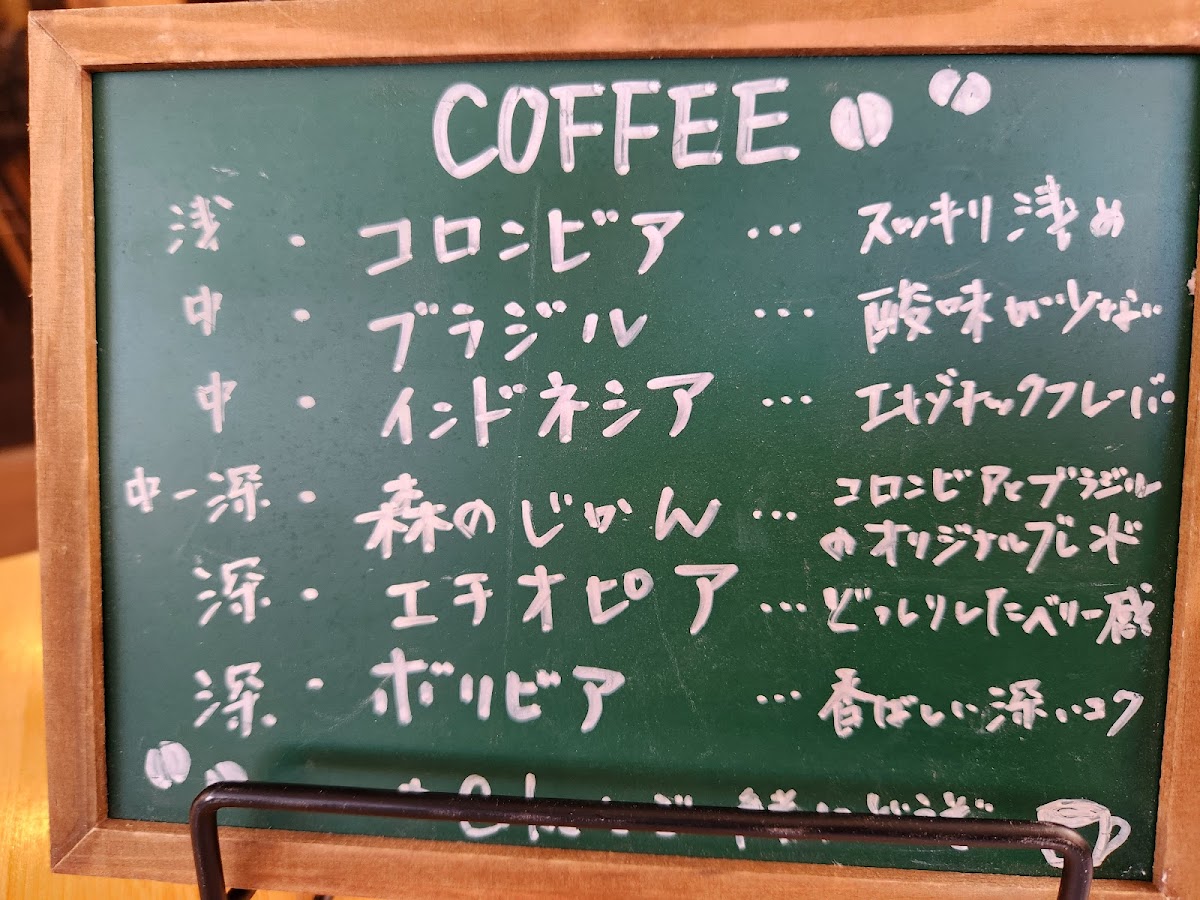 COFFEE
浅・コロンビア … スッキリ浅め
中・ブラジル … 酸味が少ない
中・インドネシア … エキゾチックフレーバー
中ー深・森のじかん … コロンビアとブラジル
のオリジナルブレンド
深・エチオピア … どっしりしたベリー感
深・ボリビア … 香ばしい深いコク